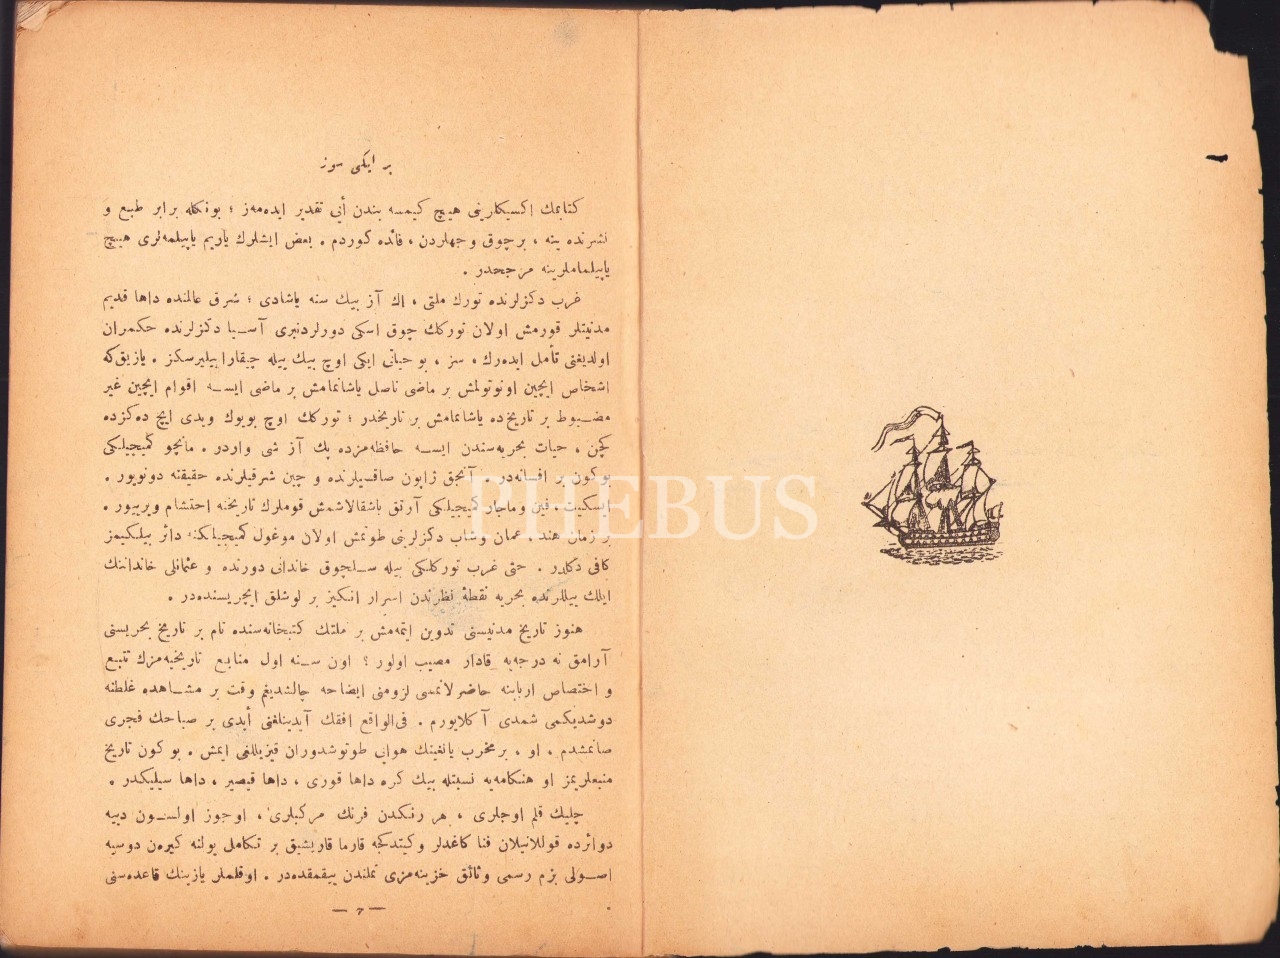 بر ایکی سوز
كتابمك اكسيكلرینی هیچ كیمسه بندن أیی تقدیر ایده‌مه‌ز ؛ بونكله برابر طبع و
نشرنده ینه ، برچوق وجهلردن ، فائده كوردم . بعض ایشلرك یاریم یاپیلمه‌لری هیچ
یاپیلماملرینه مرجحدر .
غرب دكزلرنده تورك ملتی ، اك آز بیك سنه یاشادی ؛ شرق عالمنده داها قدیم
مدنیتلر قورمش اولان توركك چوق اسكی دورلردنبری آسیا دكزلرنده حكمران
اولدیغنی تأمل ایده‌رك ، سز ، بو حیاتی ایكی اوچ بیك ییله چیقارا بیلیرسكز . یازیق‌كه
اشخاص ایچین اونوتولمش بر ماضی ناصل یاشانمامش بر ماضی ایسه اقوام ایچین غیر
مضبوط بر تاریخ‌ده یاشانمامش بر تاریخدر ؛ توركك اوچ بویوك ویدی ایچ ده‌كزده
كچن ، حیات بحریه‌سندن ایسه حافظه‌مزده پك آز شی واردر . مانچو كمیجیلكی
بوكون بر افسانه‌در . آنجق ژاپون صاقسیلرنده و چین شرقیلرنده حقیقته دونویور .
ایسكیت ، فین وماجار كمیجیلكی آرتق باشقالاشمش قوملرك تاریخنه احتشام ویرییور .
بر زمان هند ، عمان وشاب دكزلرینی طوتمش اولان موغول كمیجیلكنه دائر بیلكیمز
كافی دكلدر . حتی غرب توركلكی بیله سلچوق خاندانی دورنده و عثمانلی خانداننك
ایلك ییللرنده بحریه نقطهٔ نظرندن اسرار انكیز بر لوشلق ایچریسنده‌در .
هنوز تاریخ مدنیسنی تدوین ایتمه‌مش بر ملتك كتبخانه‌سنده تام بر تاریخ بحریسنی
آرامق نه درجه‌یه قادار مصیب اولور ؟ اون سنه اول منابع تاریخیه‌مزك تتبع
و اختصاص اربابنه حاضرلانمسی لزومنی ایضاحه چالشدیغم وقت بر مشاهده غلطنه
دوشدیكمی شمدی آكلایورم . فی‌الواقع افقك آیدینلغنی أبدی بر صباحك فجری
صانمشدم ، او ، بر مخرب یانغینك هوایی طوتوشدوران قیزیللغی ایمش . بوكون تاریخ
منبعلریمز او هنكامه‌یه نسبتله بیك كره داها قوری ، داها قیصیر ، داها سیلیكدر .
چلیك قلم اوجلری ، هر رنكدن فرنك مركبلری ، اوجوز اولسون دییه
دوائرده قوللانیلان فنا كاغدلر وكیتدكجه قارما قاریشیق بر تكامل یولنه كیره‌ن دوسیه
اصولی بزم رسمی وثائق خزینه‌مزی تملندن ییقمقده‌در . اوقلملر یازینك قاعده‌سنی
— ٧ —
PHEBUS